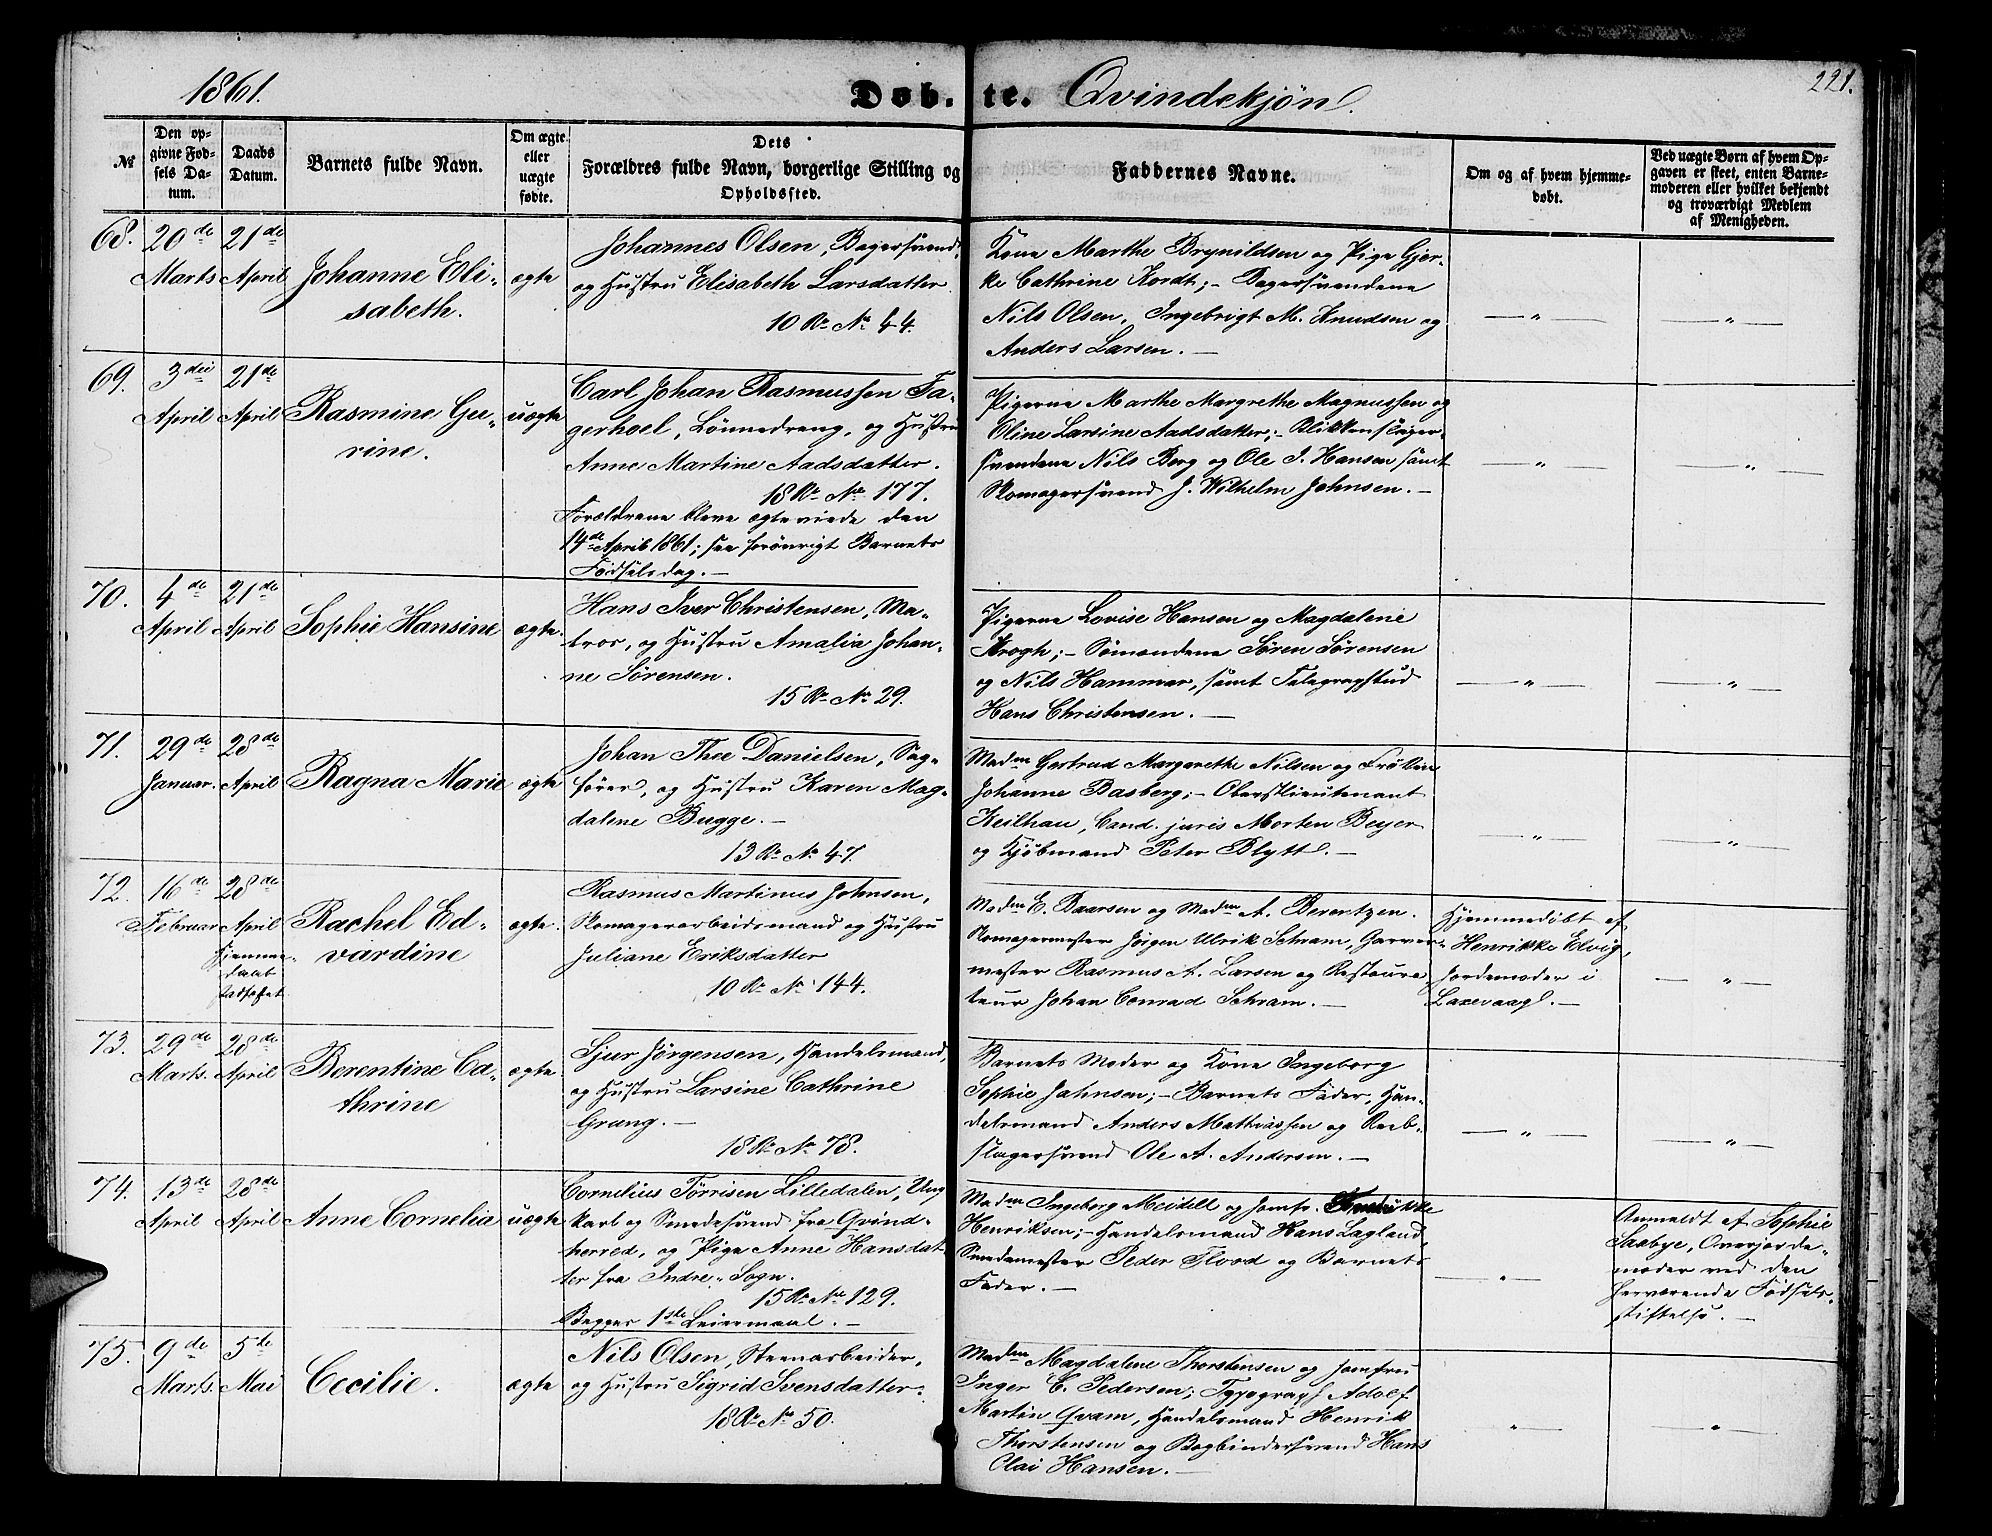 1861.
Døb-te. Qvindekjøn.
221.
№
Den op-
givne Fød-
sels Da-
tum.
Daabs
Datum.
Barnets fulde Navn.
Om ægte
eller
uægte
fødte.
Dets
Forældres fulde Navn, borgerlige Stilling og
Opholdssted.
Faddernes Navne.
Om og af hvem hjemme-
døbt.
Ved uægte Børn af hvem Op-
gaven er skeet, enten Barne-
moderen eller hvilket bekjendt
og troværdigt Medlem
af Menigheden.
68.
20de
Marts
21de
April
Johanne Eli-
sabeth.
ægte
Johannes Olsen, Bagersvend,
og Hustru Elisabeth Larsdatter.
10 R. No 44.
Kone Marthe Brynildsen og Pige Gjer-
ke Cathrine Kordt; - Bagersvendene
Nils Olsen, Ingebrigt M. Knudsen og
Anders Larsen. -
- " -
- " -
69.
3die
April
21de
April
Rasmine Gu-
rine.
uægte
Carl Johan Rasmussen Fa-
gerhoel, Lønnedreng, og Hustru
Anne Martine Aadsdatter.
18 R. No 177.
Forældrene bleve ægteviede den
14de April 1861; saa forøvrigt Barnets
Fødselsdag. -
Pigerne Marthe Margrethe Magnussen og
Oline Larsine Aadsdatter; - Blikkenslager-
svendene Nils Berg og Ole I. Hansen samt
Skomagersvend J. Wilhelm Johnsen. -
- " -
- " -
70.
4de
April
21de
April
Sophie Hansine
ægte.
Hans Iver Christensen, Ma-
tros, og Hustru Amalia Johan-
ne Sørensen.
15 R. No 29.
Pigerne Lovise Hansen og Magdalene
Krogh; - Sømændene Søren Sørensen
og Nils Hammer, samt Telegrafstud
Hans Christensen. -
- " -
- " -
71.
29de
Januar.
28de
April
Ragna Marie
ægte
Johan Thee Danielsen, Sag-
fører, og Hustru Karen Mag-
dalene Bugge. -
13 R. No 47.
Madm Gertrud Margarethe Nilsen og Frøken
Johanne Basberg; - Oberstlieutenant
Keilhau, Cand. juris Morten Beyer
og Kjøbmand Peter Blytt. -
- " -
- " -
72.
16de
Februar
28de
April
Hjemme-
daab
stadfæstet
Rachel Ed-
vardine
ægte.
Rasmus Martinus Johnsen,
Skomagerarbeidsmand og Hustru
Juliane Eriksdatter
10 R. No 144.
Madm E. Baarsen og Madm A. Berentzen.
Skomagermester Jørgen Ulrik Schram, Garver-
mester Rasmus A. Larsen og Restaura-
teur Johan Conrad Schram. -
Hjemmedøbt af
Henrikke Edvig,
Jordemoder i
Laxevaag. -
- " -
73.
29de
Marts.
28de
April
Berentine Ca-
thrine
ægte.
Sjur Jørgensen, Handelsmand,
og Hustru Larsine Cathrine
Grung. -
18 R. No 78.
Barnets Moder og Kone Ingeborg
Sophie Jahnsen; - Barnets Fader, Han-
delsmand Anders Mathiassen og Reeb-
slagersvend Ole A. Andersen. -
- " -
- " -
74.
13de
April
28de
April
Anne Cornelia
uægte
Cornelius Tørrisen Lilledalen, Ung-
karl og Smedesvend fra Qvind-
herred, og Pige Anne Hansdat-
ter fra Indre-Sogn.
15 R. No 129.
Begges 1ste Leiermaal. -
Madm Ingeborg Meidell og Jomfr.
Henriksen; - Handelsmand Hans Lagland,
Smedemester Peder Flood og Barnets
Fader. -
- " -
Anmeldt af Sophie
Saabye, Overjorde-
moder ved den
herværende Fødsels-
stiftelse. -
75.
9de
Marts.
5te
Mai
Cecilie.
ægte
Nils Olsen, Steenarbeider,
og Hustru Sigrid Svensdatter.
18 R. No 50.
Madm Magdalene Thorstensen og Jomfru
Inger C. Pedersen; Typograph Adolf
Martin Qvam, Handelsmand Henrik
Thorstensen og Bogbindersvend Hans
Clai Hansen. -
- " -
- " -